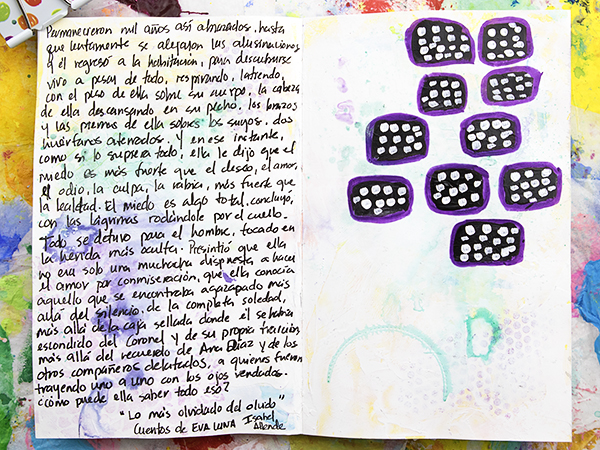 Permanecieron mil años así abrazados, hasta
que lentamente se alejaron las alusinaciones
y él regresó a la habitación, para descubrirse
vivo a pesar de todo, respirando, latiendo,
con el peso de ella sobre su cuerpo, la cabeza
de ella descansando en su pecho, los brazos
y las piernas de ella sobre los suyos, dos
huérfanos aterrados. Y en ese instante,
como si lo supiera todo, ella le dijo que el
miedo es más fuerte que el deseo, el amor,
el odio, la culpa, la rabia, más fuerte que
la lealtad. El miedo es algo total, concluyó,
con las lágrimas rodándole por el cuello.
Todo se detuvo para el hombre, tocado en
la herida más oculta. Presintió que ella
no era solo una muchacha dispuesta a hacer
el amor por conmiseración, que ella conocía
aquello que se encontraba agazapado más
allá del silencio, de la completa soledad,
más allá de la caja sellada donde él se había
escondido del Coronel y de su propia traición,
más allá del recuerdo de Ana Díaz y de los
otros compañeros delatados, a quienes fueron
trayendo uno a uno con los ojos vendados.
¿cómo puede ella saber todo eso?
"Lo más olvidado del olvido"
Cuentos de EVA LUNA Isabel
Allende